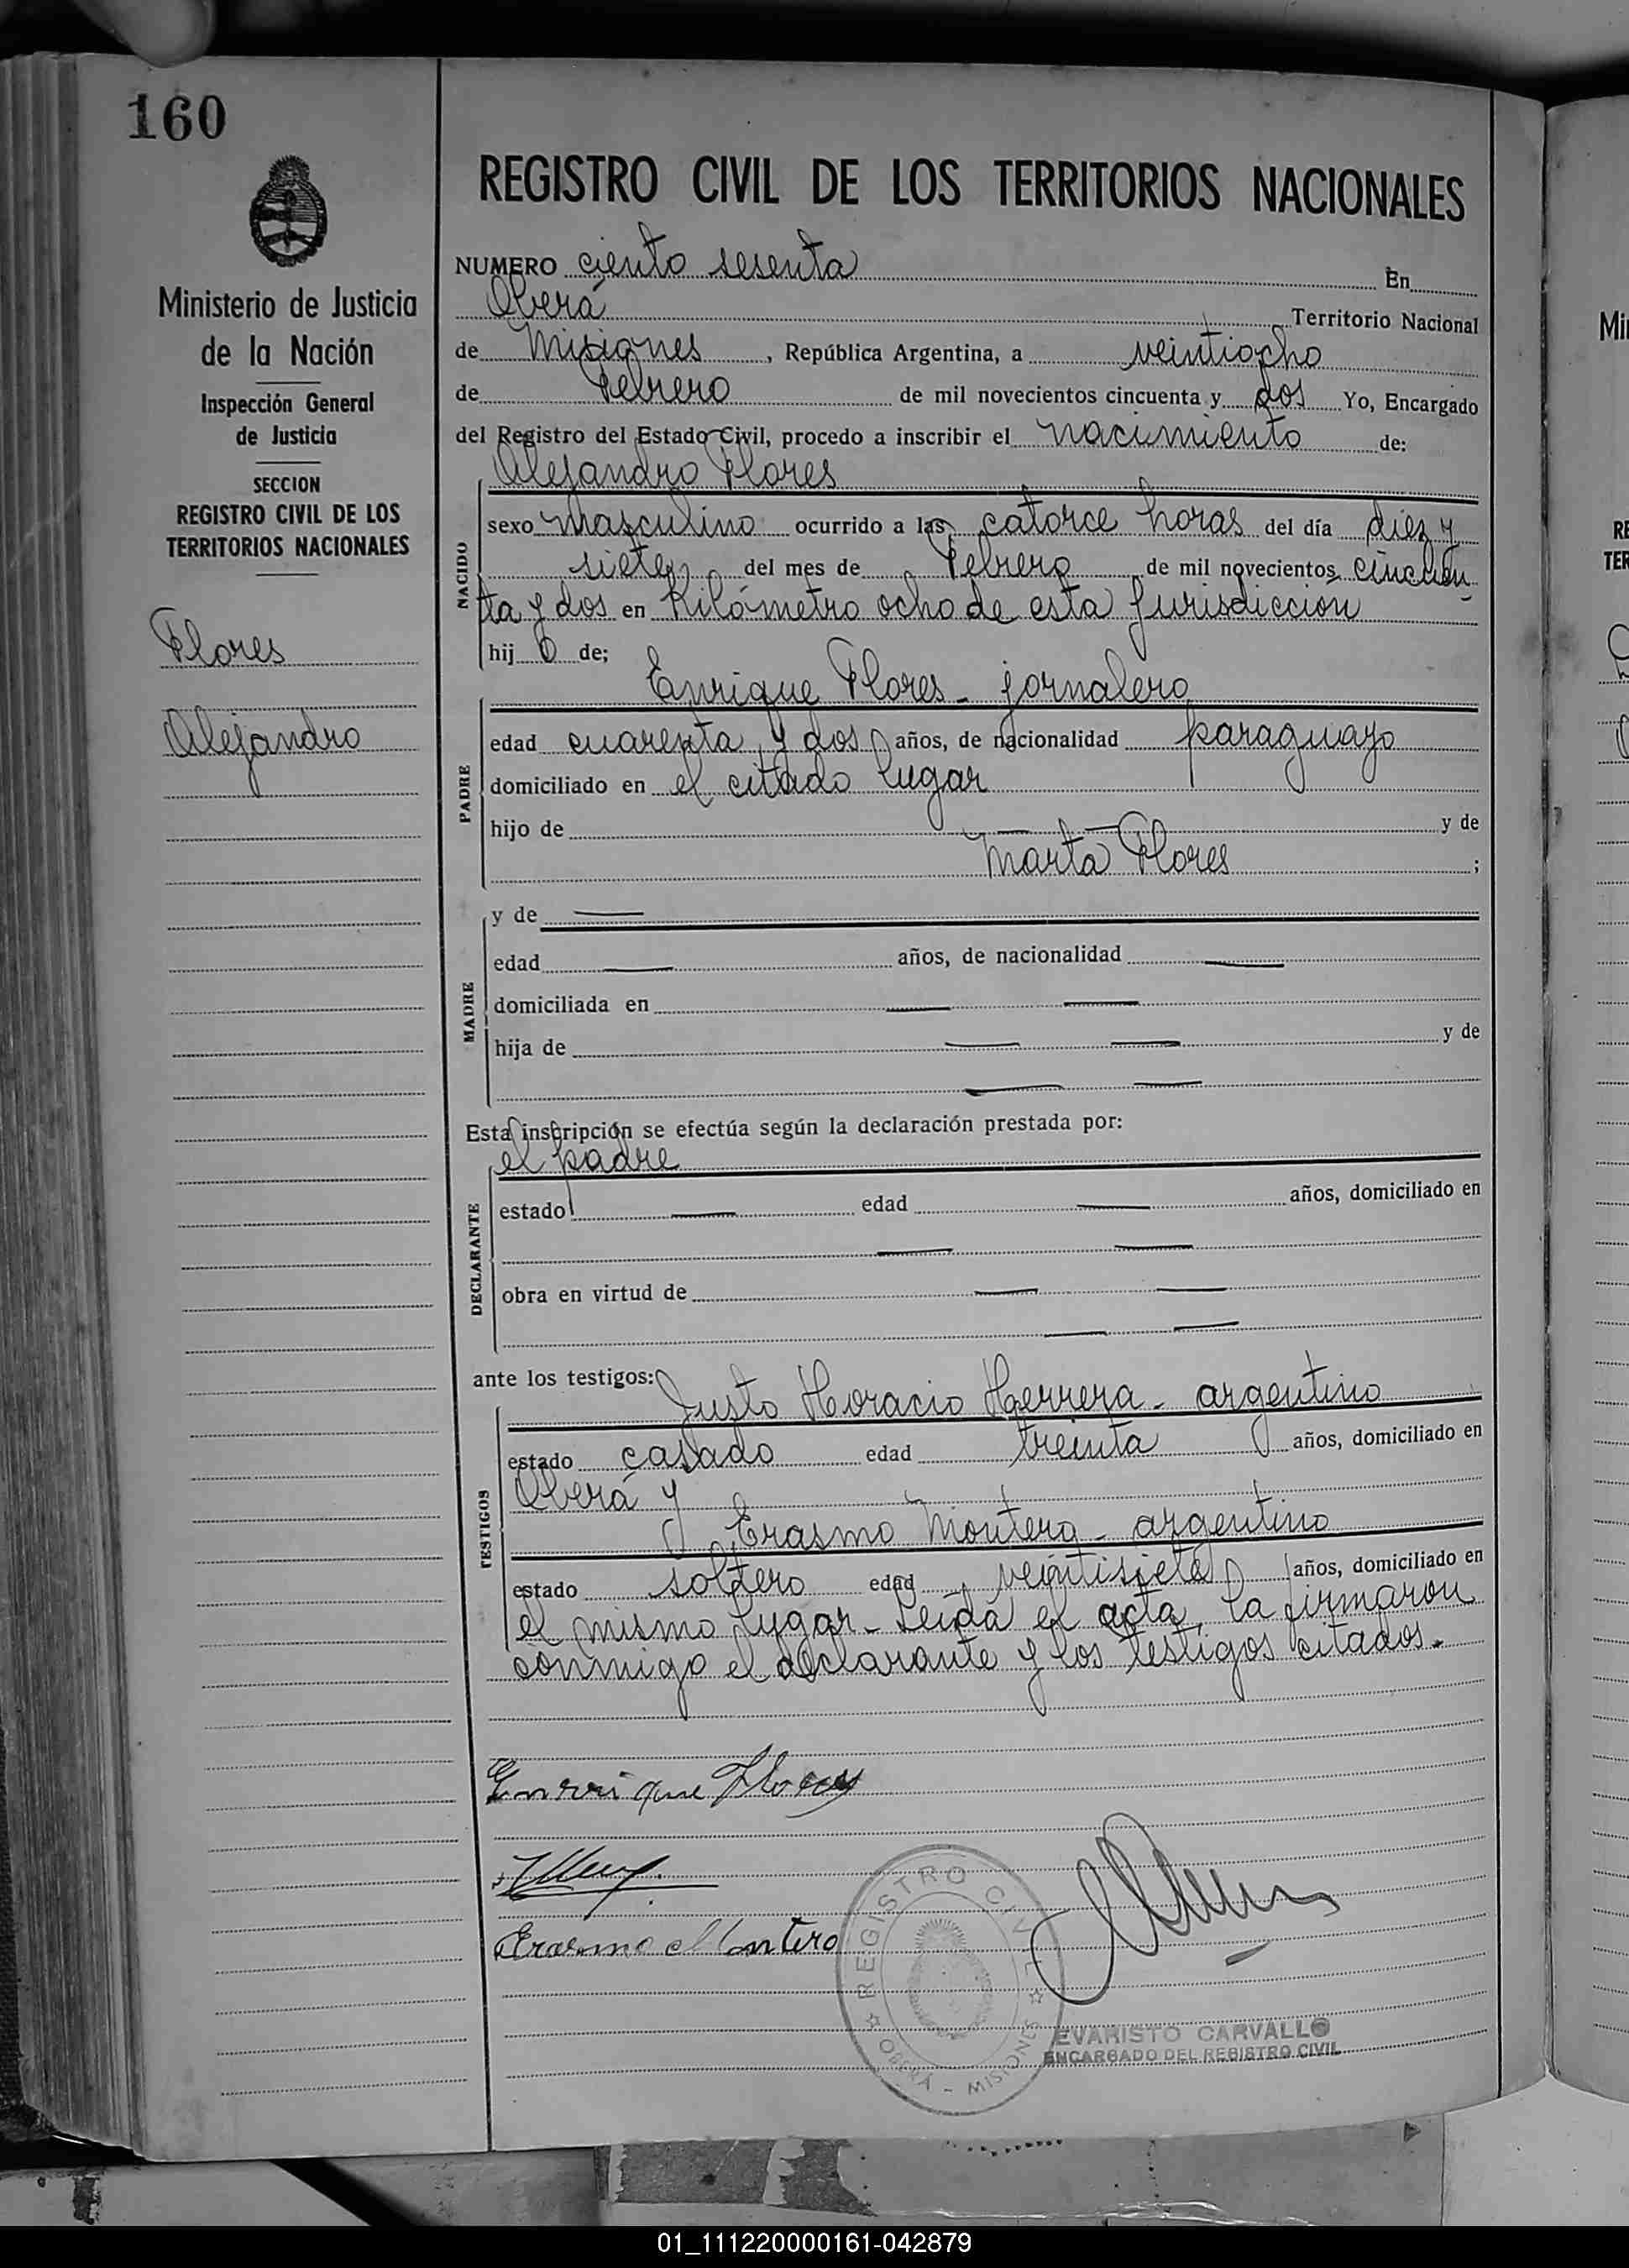 160
REGISTRO CIVIL DE LOS TERRITORIOS NACIONALES
Ministerio de Justicia
de la Nación
Inspección General
de Justicia
SECCION
REGISTRO CIVIL DE LOS
TERRITORIOS NACIONALES
Flores
Alejandro
NUMERO ciento sesenta En
Oberá Territorio Nacional
de Misiones, República Argentina, a veintiocho
de Febrero de mil novecientos cincuenta y dos Yo, Encargado
del Registro del Estado Civil, procedo a inscribir el nacimiento de:
Alejandro Flores
NACIDO
sexo masculino ocurrido a las catorce horas del día diez y
siete del mes de Febrero de mil novecientos cincuen
ta y dos en Kilómetro ocho de esta jurisdiccion
hijo de;
Enrique Flores - jornalero
PADRE
edad cuarenta y dos años, de nacionalidad paraguayo
domiciliado en el citado lugar
hijo de — — y de
Marta Flores ;
MADRE
y de —
edad — años, de nacionalidad —
domiciliada en — —
hija de — — y de
— —
Esta inscripción se efectúa según la declaración prestada por:
el padre
DECLARANTE
estado — edad — años, domiciliado en
— —
obra en virtud de — —
— —
ante los testigos:
Justo Horacio Herrera - argentino
TESTIGOS
estado casado edad treinta años, domiciliado en
Oberá y
Erasmo Montero - argentino
estado soltero edad veintisiete años, domiciliado en
el mismo lugar - Leída el acta, la firmaron
conmigo el declarante y los testigos citados.
Enrrique Flores
Erasmo Montero
REGISTRO CIVIL
OBERÁ - MISIONES
EVARISTO CARVALLO
ENCARGADO DEL REGISTRO CIVIL
Mi
RE
TER
01_111220000161-042879